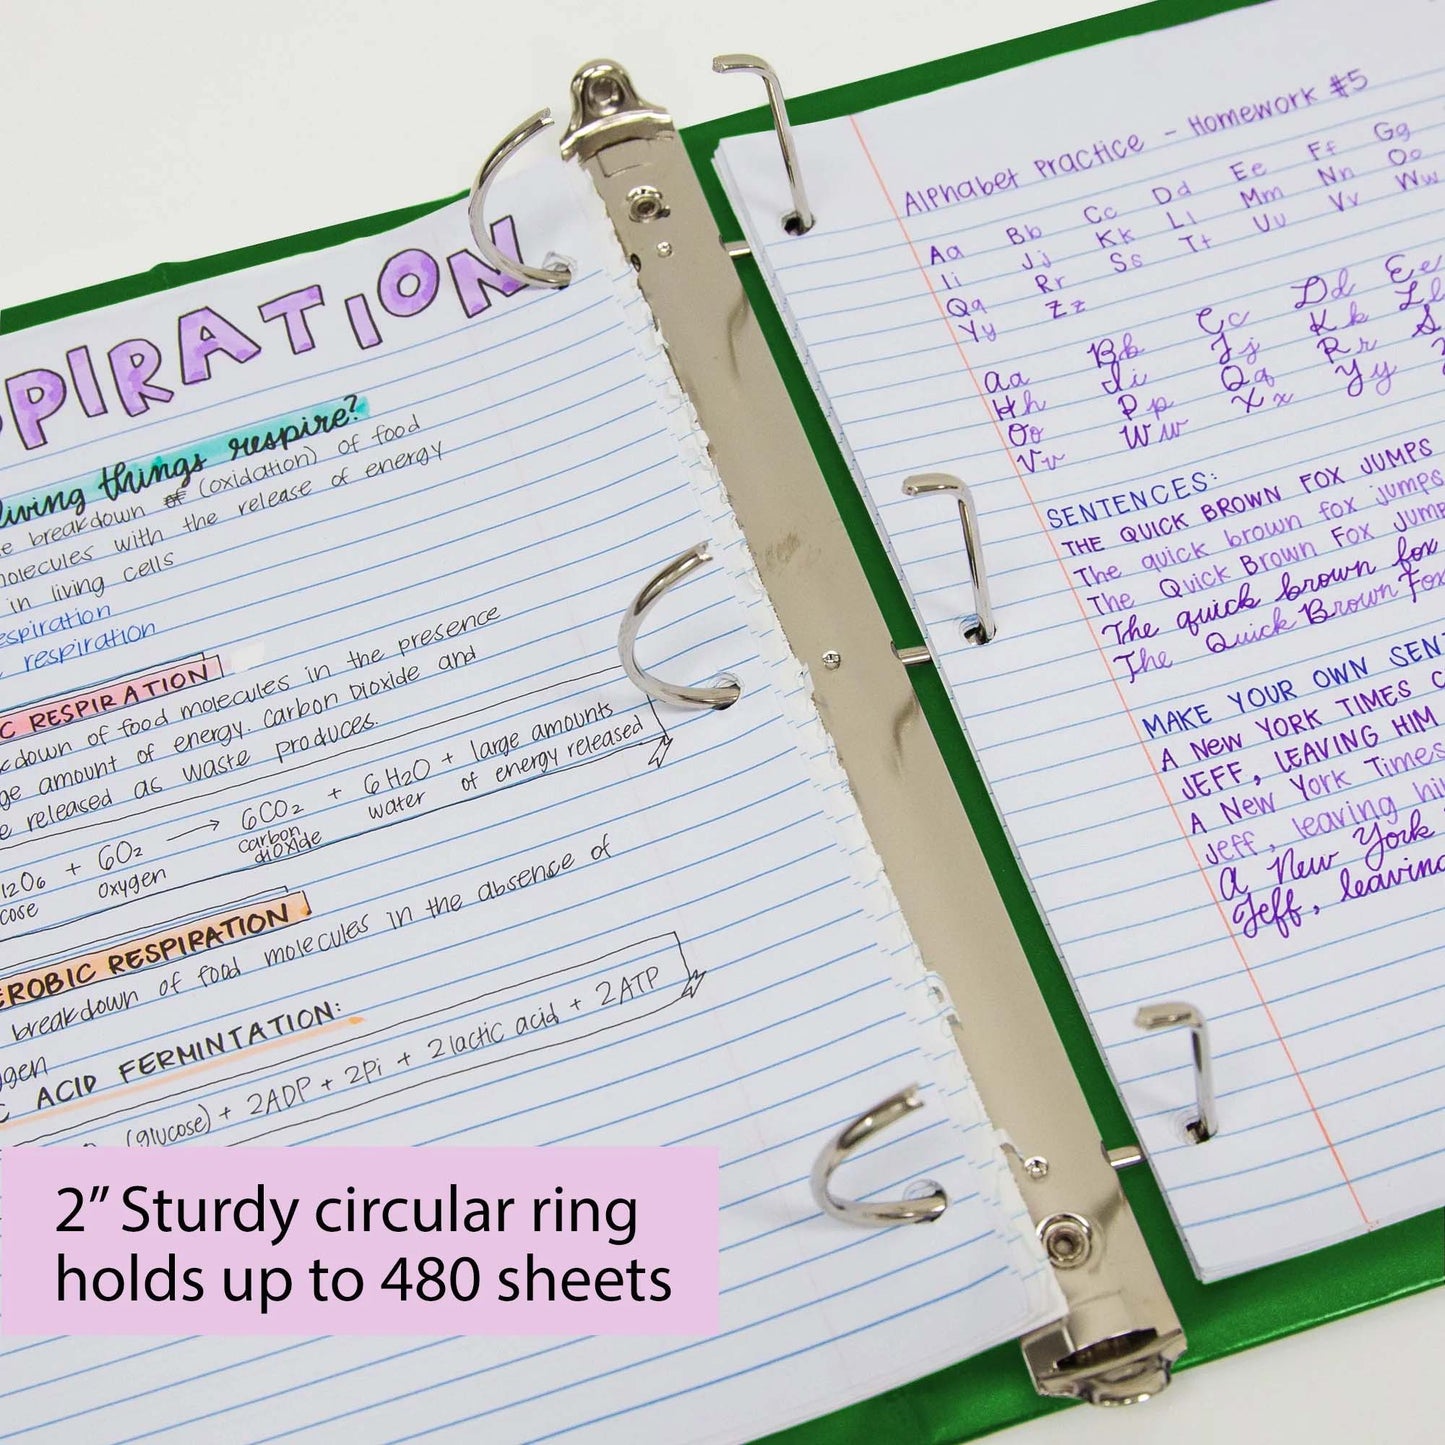 PIRATION
living things respire?
breakdown of (oxidation) of food
molecules with the release of energy
in living cells
respiration
respiration
C RESPIRATION
kdown of food molecules in the presence
ge amount of energy. Carbon Dioxide and
e released as waste produces.
12O6 + 6O2 → 6CO2 + 6H2O + large amounts
cose oxygen carbon dioxide water of energy released
EROBIC RESPIRATION
breakdown of food molecules in the absence of
ygen
C ACID FERMINTATION:
(glucose) + 2ADP + 2Pi + 2lactic acid + 2ATP
2” Sturdy circular ring
holds up to 480 sheets
Alphabet Practice - Homework #5
Aa Bb Cc Dd Ee Ff Gg
Ii Jj Kk Ll Mm Nn Oo
Qq Rr Ss Tt Uu Vv Ww
Yy Zz
Aa Bb Cc Dd Ee
Hh Ii Jj Kk Ll
Oo Pp Qq Rr S
Vv Ww Xx Yy
SENTENCES:
THE QUICK BROWN FOX JUMPS
The quick brown fox jumps
The Quick Brown Fox Jump
The quick brown fox
The Quick Brown Fox
MAKE YOUR OWN SEN
A NEW YORK TIMES C
JEFF, LEAVING HIM
A New York Times
Jeff, leaving hi
A New York
Jeff, leaving